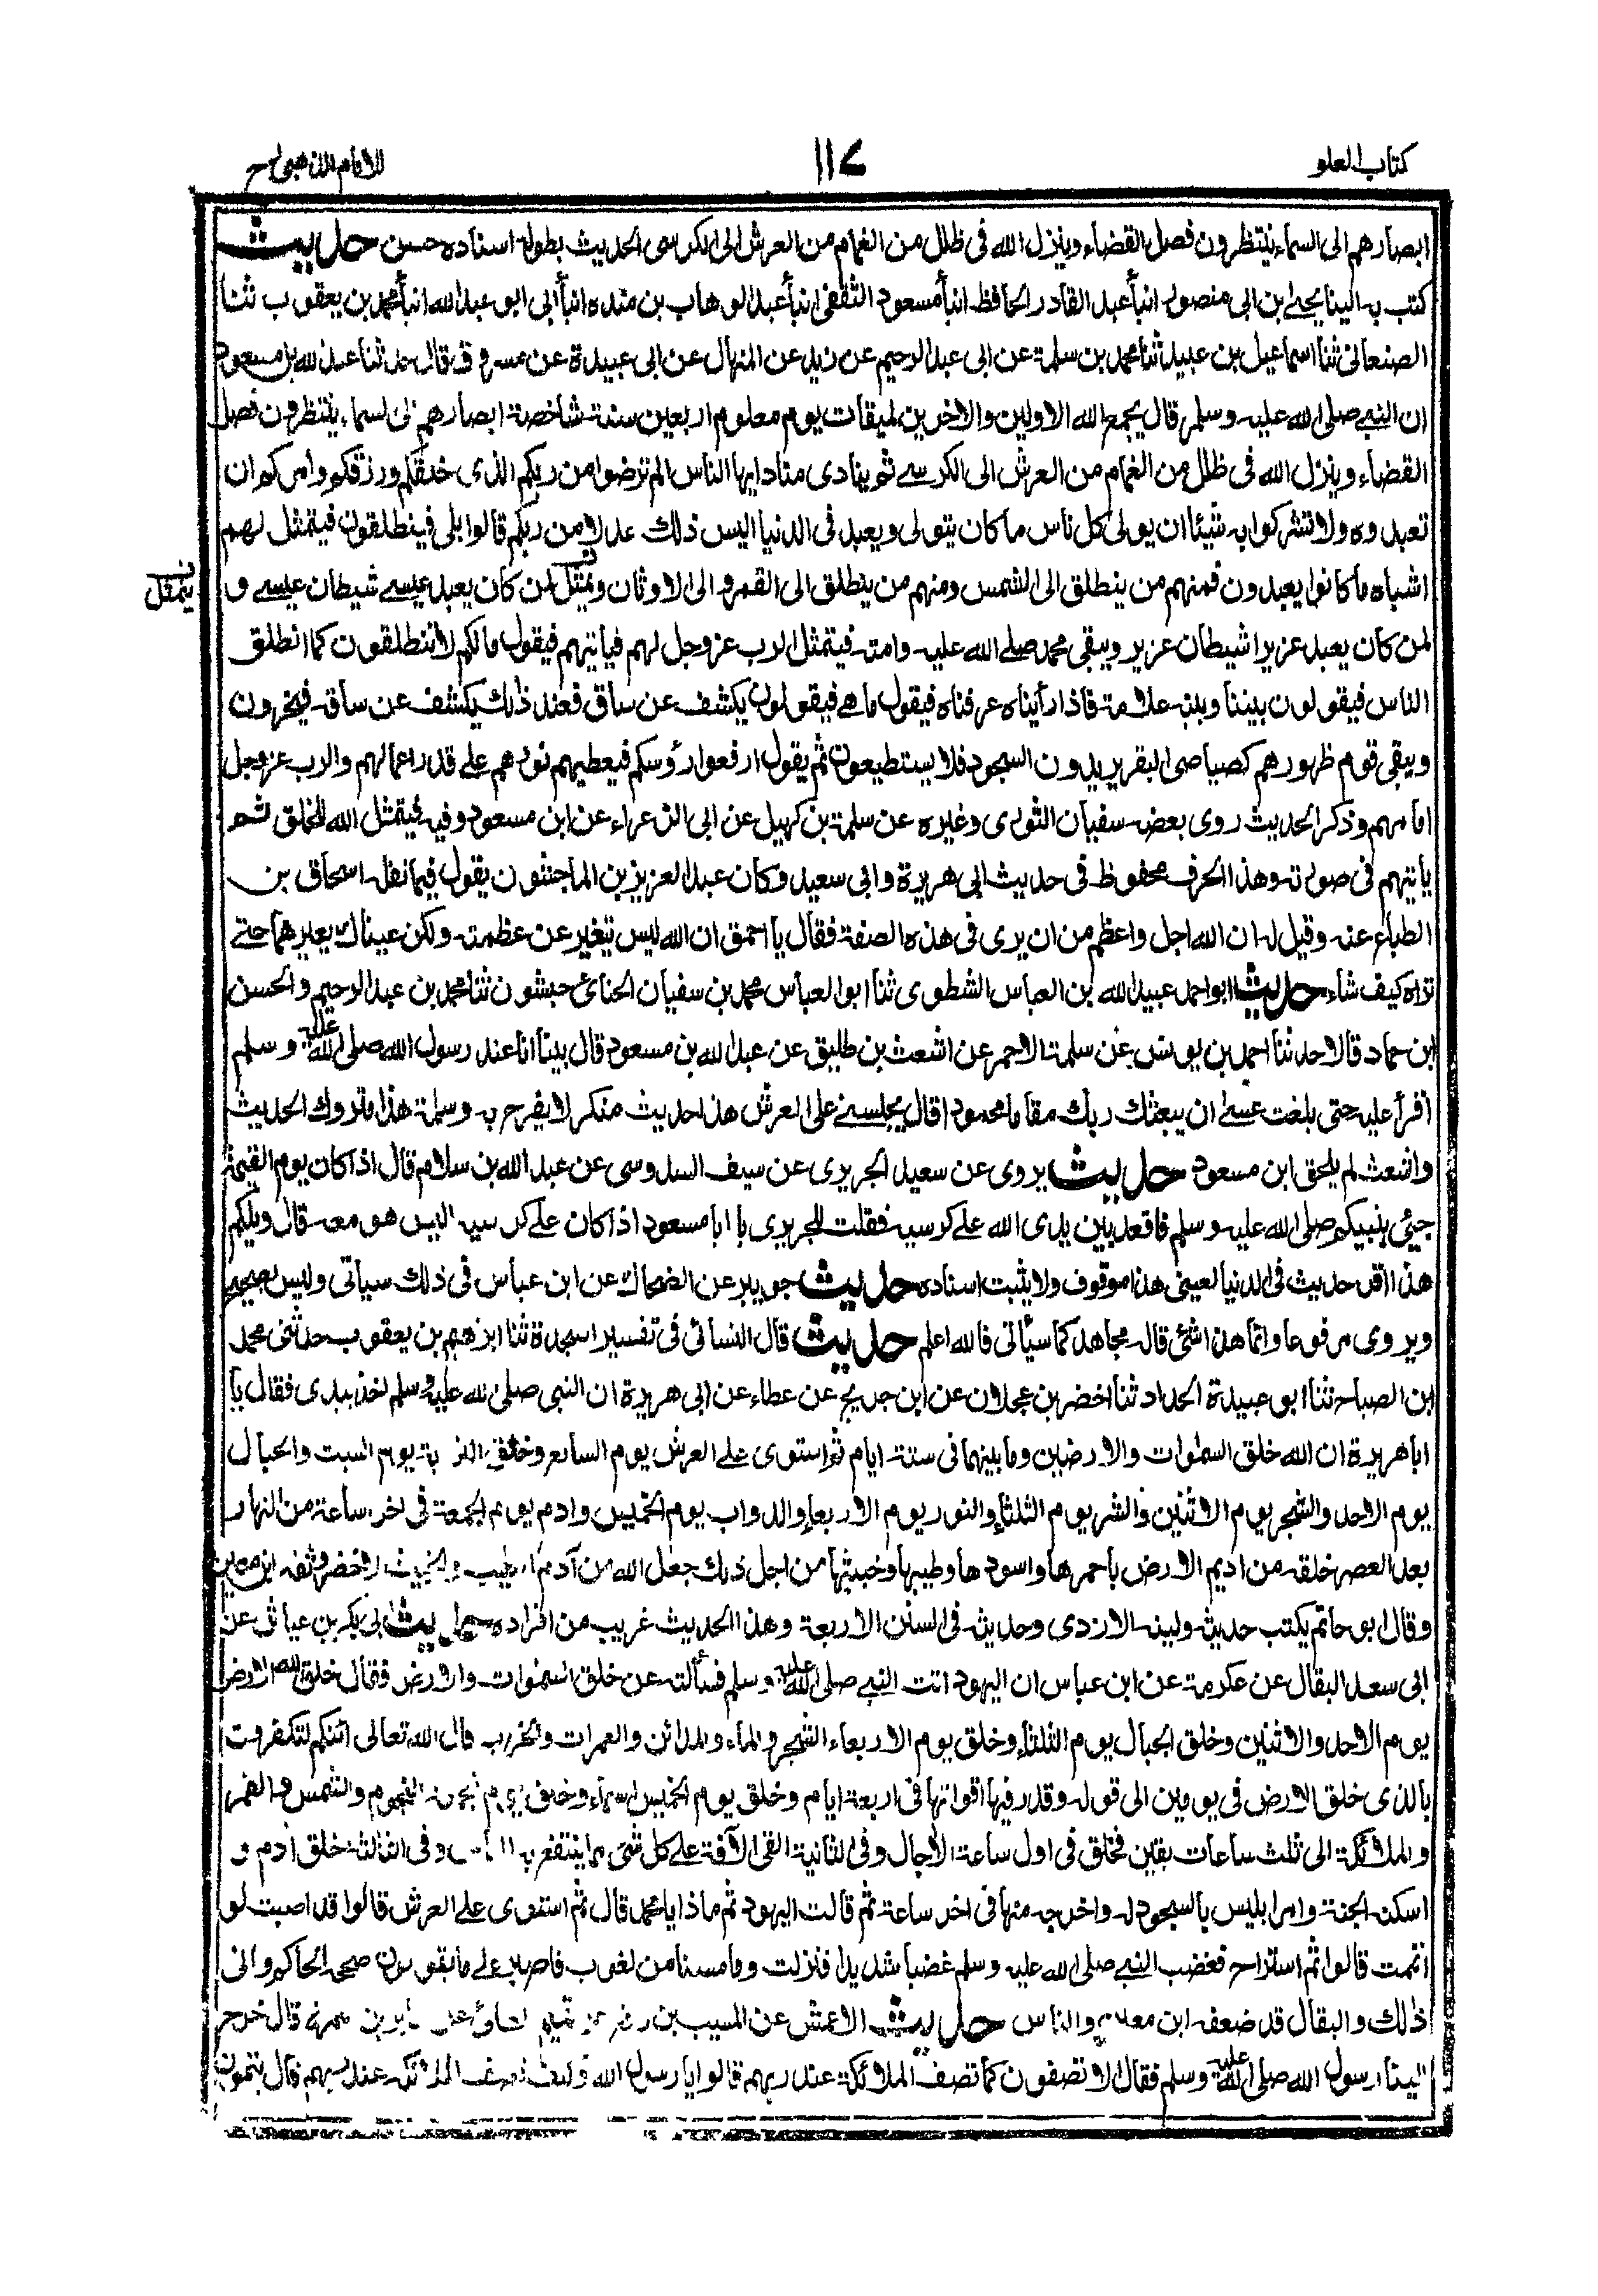 كتاب العلو
١١٧
للامام الذهبي رح
ابصارهم الى السماء ينتظرون فصل القضاء وينزل الله فى ظلل من الغمام من العرش الى الكرسى الحديث بطوله اسناده حسن حديث
كتب به الينا يحيى ابن ابى منصور انبأ عبد القادر الحافظ انبأ مسعود الثقفى انبأ عبد الوهاب بن منده انبأ ابى ابو عبد الله انبأ محمد بن يعقوب ثنا
الصنعانى ثنا اسماعيل بن عبيد ثنا محمد بن سلمة عن ابى عبد الرحيم عن زيد عن المنهال عن ابى عبيدة عن مسروق قال حدثنا عبد الله بن مسعود
ان النبي صلى الله عليه وسلم قال يجمع الله الاولين والاخرين لميقات يوم معلوم اربعين سنة شاخصة ابصارهم الى السماء ينتظرون فصل
القضاء وينزل الله فى ظلل من الغمام من العرش الى الكرسي ثم ينادى مناد ايها الناس الم ترضوا من ربكم الذى خلقكم ورزقكم وامركم ان
تعبدوه ولا تشركوا به شيئا ان يولى كل ناس ما كان يتولى ويعبد فى الدنيا اليس ذلك عدلا من ربكم قالوا بلى فينطلقون فيتمثل لهم
اشباه ما كانوا يعبدون فمنهم من ينطلق الى الشمس ومنهم من ينطلق الى القمر و الى الاوثان ويمثل لمن كان يعبد عيسے شيطان عيسے و
يتمثل
لمن كان يعبد عزيرا شيطان عزير ويبقى محمد صلے الله عليه وامته فيتمثل الرب عز وجل لهم فيأتيهم فيقول مالكم لا تنطلقون كما انطلق
الناس فيقولون بيننا وبينه علامة فاذا رأيناه عرفناه فيقول ما هي فيقولون يكشف عن ساق فعند ذلك يكشف عن ساق فيخرون
ويبقى قوم ظهورهم كصياصى البقر يريدون السجود فلا يستطيعون ثم يقول ارفعوا رؤسكم فيعطيهم نورهم علے قدر اعمالهم والرب عز وجل
امامهم وذكر الحديث روى بعضه سفيان الثورى وغيره عن سلمة بن كهيل عن ابى الزعراء عن ابن مسعود وفيه فيتمثل الله للخلق ثم
يأتيهم فى صورته وهذا الحرف محفوظ فى حديث ابى هريرة وابى سعيد وكان عبد العزيز بن الماجشون يقول فيما نقله اسحاق بن
الطباع عنه وقيل له ان الله اجل واعظم من ان يرى فى هذه الصفة فقال يا احمق ان الله ليس يتغير عن عظمته ولكن عيناك يغيرهما حتے
تراه كيف شاء حديث ابو احمد عبيد الله بن العباس الشطوى ثنا ابو العباس محمد بن سفيان الحنائى حبشون ثنا محمد بن عبد الرحيم والحسن
ابن حماد قالا حدثنا احمد بن يونس عن سلمة الاحمر عن اشعث بن طليق عن عبد الله بن مسعود قال بينا انا عند رسول الله صلى الله عليه وسلم
اقرأ عليه حتى بلغت عسے ان يبعثك ربك مقاما محمودا قال يجلسنے على العرش هذا حديث منكر لا يفرح به وسلمة هذا متروك الحديث
واشعث لم يلحق ابن مسعود حديث يروى عن سعيد الجريرى عن سيف السدوسى عن عبد الله بن سلام قال اذا كان يوم القيمة
جيئ بنبيكم صلى الله عليه وسلم فاقعد بين يدى الله علے كرسيه فقلت للجريرى يا ابا مسعود اذا كان علے كرسيه اليس هو معه قال ويلكم
هذا اقر حديث فى الدنيا لعينى هذا موقوف ولا يثبت اسناده حديث جويبر عن الضحاك عن ابن عباس فى ذلك سيأتى وليس بصحيح
ويروى مرفوعا وانما هذا شئ قاله مجاهد كما سيأتى فالله اعلم حديث قال النسائى فى تفسير السجدة ثنا ابراهيم بن يعقوب حدثنى محمد
ابن الصباح ثنا ابو عبيدة الحداد ثنا اخضر بن عجلان عن ابن جريج عن عطاء عن ابى هريرة ان النبى صلى الله عليه وسلم اخذ بيدى فقال يا
ابا هريرة ان الله خلق السموات والارضين وما بينهما فى ستة ايام ثم استوى علے العرش يوم السابع وخلق التربة يوم السبت والجبال
يوم الاحد والشجر يوم الاثنين والشر يوم الثلثاء والنور يوم الاربعاء والدواب يوم الخميس وادم يوم الجمعة فى اخر ساعة من النهار
بعد العصر خلقه من اديم الارض باحمرها واسودها وطيبها وخبيثها من اجل ذلك جعل الله من آدم الطيب والخبيث اخضر وثقه ابن معين
وقال ابو حاتم يكتب حديثه ولينه الازدى وحديثه فى السنن الاربعة وهذا الحديث غريب من افراده حديث ابى بكر بن عياش عن
ابى سعد البقال عن عكرمة عن ابن عباس ان اليهود اتت النبي صلى الله عليه وسلم فسألته عن خلق السموات والارض فقال خلق الله الارض
يوم الاحد والاثنين وخلق الجبال يوم الثلثاء وخلق يوم الاربعاء الشجر والماء والمدائن والعمران والخراب قال الله تعالى ائنكم لتكفرون
بالذى خلق الارض فى يومين الى قوله وقدر فيها اقواتها فى اربعة ايام وخلق يوم الخميس السماء وخلق يوم الجمعة النجوم والشمس والقمر
والملائكة الى ثلث ساعات بقين فخلق فى اول ساعة الآجال وفى الثانية القى الآفة علے كل شئ مما ينتفع به وفى الثالثة خلق ادم و
اسكنه الجنة وامر ابليس بالسجود له واخرجه منها فى اخر ساعة ثم قالت اليهود ثم ماذا يا محمد قال ثم استوى علے العرش قالوا قد اصبت لو
اتممت قالوا ثم استراح فغضب النبي صلى الله عليه وسلم غضبا شديدا فنزلت وما مسنا من لغوب فاصبر علے ما يقولون صححه الحاكم وانى
ذلك والبقال قد ضعفه ابن معين والناس حديث الاعمش عن المسيب بن رافع عن تميم عن جابر بن سمرة قال خرج
الينا رسول الله صلى الله عليه وسلم فقال الا تصفون كما تصف الملائكة عند ربهم قالوا يا رسول الله وكيف تصف الملائكة عند ربهم قال يتمون